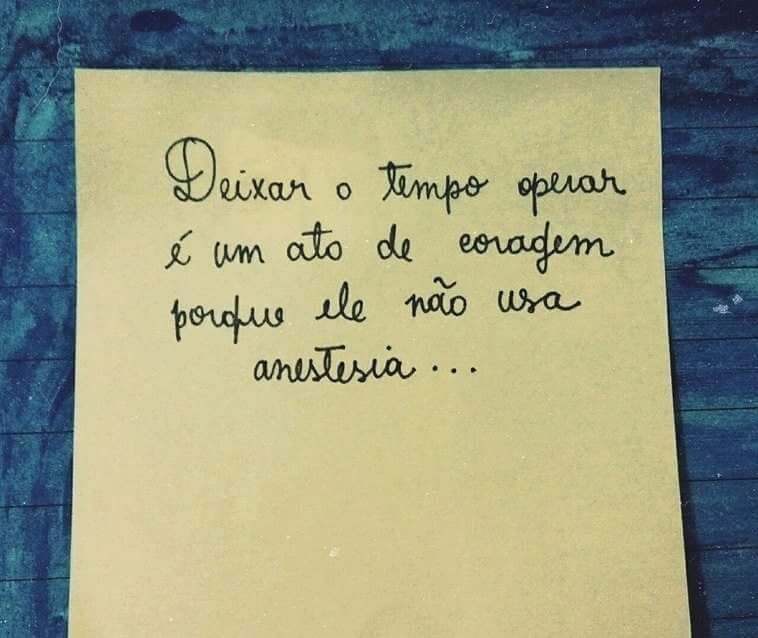 Deixar o tempo operar
é um ato de coragem
porque ele não usa
anestesia...